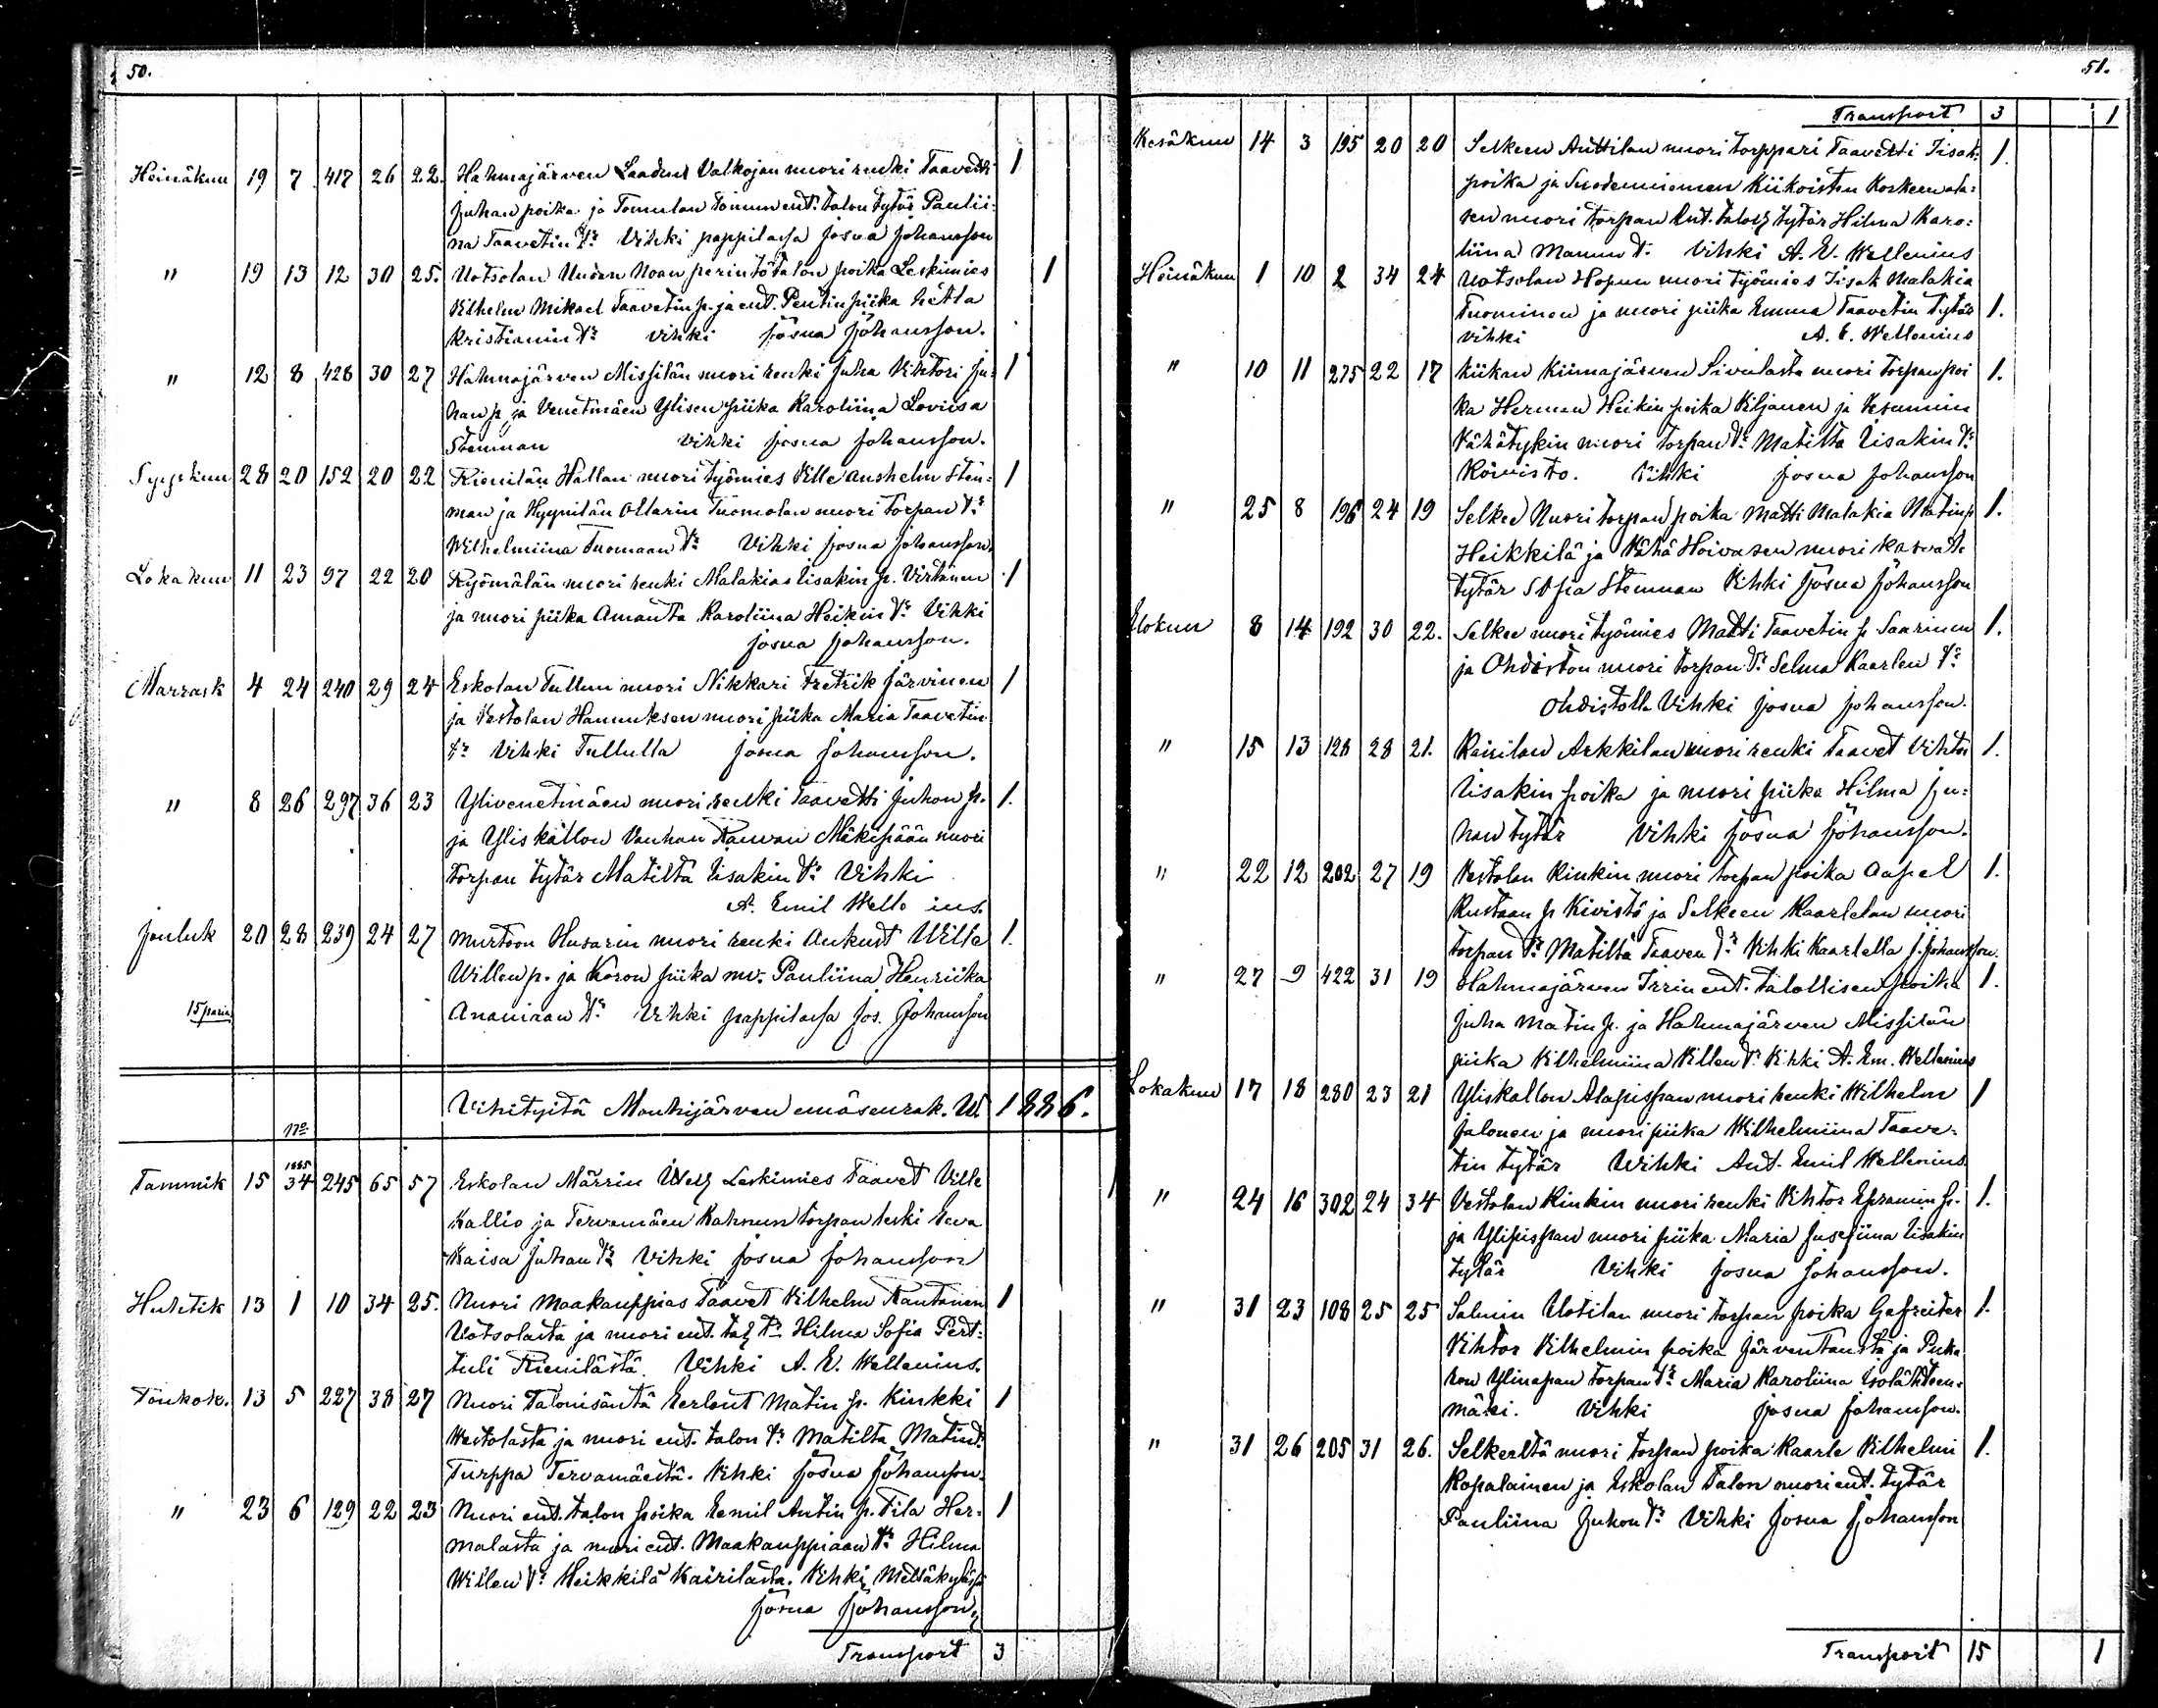 50.
Heinäkuu 19 7 417 26 22. Hahmajärven Laadun Valkojan nuori renki Taavetti 1
Juhan poika ja Tomulan Tommun ent. talon tytär Paulii-
na Taavetin tr Vihki pappilassa Josua Johansson
" 19 13 12 30 25. Uotsolan Uuden Noan perintötalon poika Leskimies 1
Vilhelm Mikael Taavetin p. ja ent. Pentin piika Hetta
Kristianin tr vihki Josua Johansson.
" 12 8 428 30 27 Hahmajärven Missilän nuori renki Juha Vihtori Ju- 1
han p. ja Venetmäen Ylisen piika Karoliina Loviisa
Stenman vihki Josua Johansson.
Syyskuu 28 20 152 20 22 Rienilän Hallan nuori työmies Ville Anshelm Sten- 1
man ja Hyynilän Ollarin Tuomolan nuori Torpan tr
Wilhelmiina Tuomaan tr Vihki Josua Johansson.
Lokakuu 11 23 97 22 20 Kyömälän nuori renki Malakias Iisakin p. Virtanen 1
ja nuori piika Amanta Karoliina Heikin tr Vihki
Josua Johansson.
Marrask 4 24 240 29 24 Eskolan Tullun nuori Nikkari Fretrik Järvinen 1
ja Vestolan Hannuksen nuori piika Maria Taavetin
tr Vihki Tullulla Josua Johansson.
" 8 26 297 36 23 Ylivenetmäen nuori renki Taavetti Juhon p. 1.
ja Yliskallon Vanhan Rauvan Mäkipään nuori
torpan tytär Matilta Iisakin tr Vihki
A. Emil Welle ius.
Jouluk 20 28 239 24 27 Murtoon Husarin nuori renki Aukust Willa 1.
Willen p. ja Koron piika nv. Pauliina Henriika
15 paria Ananiaan tr Vihki pappilassa Jos. Johansson
Vihityitä Mouhijärven emäseurak. W. 1886.
No
Tammik 15 1885 34 245 65 57 Eskolan Märrin Welj Leskimies Taavet Ville 1
Kallio ja Tervamäen Kahnun torpan leski Eeva
Kaisa Juhan tr Vihki Josua Johansson
Huhtik 13 1 10 34 25. Nuori Maakauppias Taavet Vilhelm Rantanen 1
Uotsolasta ja nuori ent. tal tr Hilma Sofia Pert-
tuli Rienilästä. Vihki A. E. Wellenius.
Toukok. 13 5 227 38 27 Nuori Talonisäntä Eerlant Matin p. Kinkki 1
Westolasta ja nuori ent. talon tr Matilta Matint.
Turppa Tervamäestä. Vihki Josua Johansson.
" 23 6 129 22 23 Nuori ent. talon poika Eemil Antin p. Tila Her- 1
malasta ja nuori ent. Maakauppiaan tr Hilma
Willen tr Heikkilä Kairilasta. Vihki Metsäkylässä
Josua Johansson,
Transport 3
51.
Transport 3 1
Kesäkuu 14 3 195 20 20 Selkeen Anttilan nuori torppari Taavetti Iisak. 1.
poika ja Suodenniemen Kiikoisten Koskenala-
sen nuori torpan ent. talon tytär Hilma Karo-
liina Manun t. Vihki A. E. Wellenius
Heinäkuu 1 10 2 34 24 Uotsolan Hopun nuori työmies Iisak Malakia
Tuominen ja nuori piika Emma Taavetin tytär 1.
Vihki A. E. Wellenius
" 10 11 275 22 17 Kiikan Kiimajärven Sivulasta nuori torpan poi 1.
ka Herman Heikin poika Viljanen ja Vesunnin
Vähätykin nuori torpan tr Matilta Iisakin tr
Koivisto. Vihki Josua Johansson
" 25 8 196 24 19 Selkee Nuori torpan poika Matti Malakia Matin p. 1.
Heikkilä ja Vähä Hoivasen nuori kasvate
tytär Sofia Stenman Vihki Josua Johansson
Elokuu 8 14 192 30 22. Selkee nuori työmies Matti Taavetin p. Saarinen 1.
ja Ohdiston nuori torpan tr Selma Kaarlen tr
Ohdistolla Vihki Josua Johansson.
" 15 13 126 28 21. Kairilan Arkkilan nuori renki Taavet Vihtor 1.
Iisakin poika ja nuori piika Hilma Ju-
han tytär Vihki Josua Johansson.
" 22 12 202 27 19 Vestolan Kinkin nuori torpan poika Aapel 1.
Kustaan p Kivistö ja Selkeen Kaarlelan nuori
torpan tr Matilta Taaven tr Vihki Kaarlella J. Johansson.
" 27 9 422 31 19 Hahmajärven Irrin ent. talollisen poika 1.
Juha Matin p. ja Hahmajärven Missilän
piika Vilhelmiina Villen tr Vihki A. Em. Wellenius
Lokakuu 17 18 280 23 21 Yliskallon Alapispan nuori renki Wilhelm 1
Jalonen ja nuori piika Wilhelmiina Taave-
tin tytär Wihki Ant. Emil Wellenius
" 24 16 302 24 34 Vestolan Kinkin nuori renki Vihtor Epramin p. 1.
ja Ylipispan nuori piika Maria Jusefiina Iisakin
tytär Vihki Josua Johansson.
" 31 23 108 25 25 Salmin Uotilan nuori torpan poika Gefreiter 1.
Vihtor Vilhelmin poika Järventausta ja Puka
ron Ylinapan torpan tr Maria Karoliina Isolähteen-
mäki. Vihki Josua Johansson.
" 31 26 205 31 26. Selkeeltä nuori torpan poika Kaarle Vilhelmi 1.
Kopalainen ja Eskolan Talon nuori ent. tytär
Pauliina Juhon tr Vihki Josua Johansson
Transport 15 1